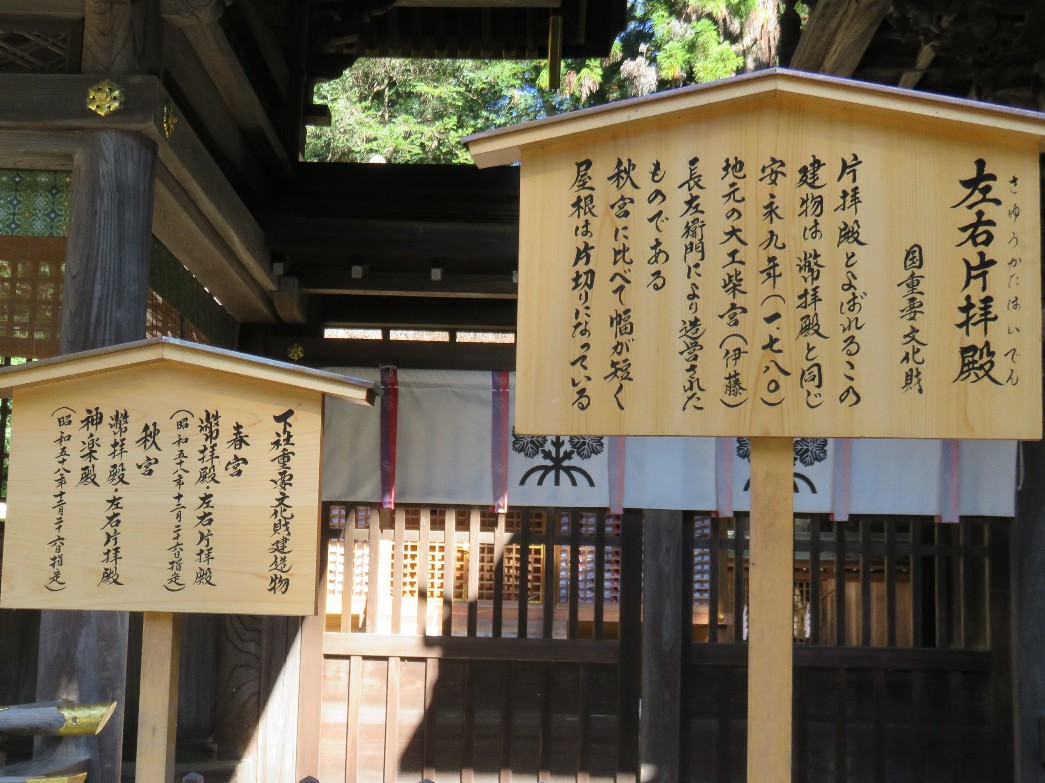 左右片拝殿
さゆうかたはいでん
国重要文化財
片拝殿とよばれるこの
建物は幣拝殿と同じ
安永九年(一七八〇)
地元の大工柴宮(伊藤)
長左衛門により造営された
ものである
秋宮に比べて幅が短く
屋根は片切りになっている
下社重要文化財建造物
春宮
幣拝殿・左右片拝殿
(昭和五十八年十二月二十六日指定)
秋宮
幣拝殿・左右片拝殿
神楽殿
(昭和五十八年十二月二十六日指定)